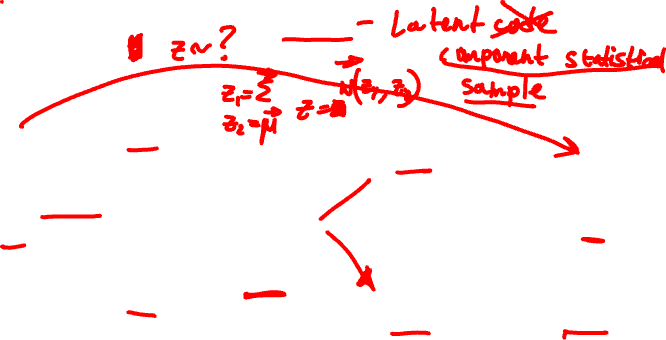 - Latent code
z ~ ?
component statistical
sample
z₁ = Σ
z = N(z₁, z₂)
z₂ = μ